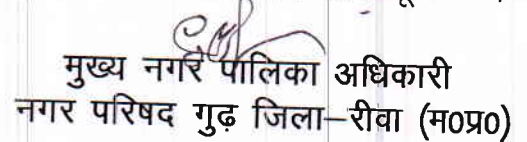 मुख्य नगर पालिका अधिकारी
नगर परिषद गुढ़ जिला–रीवा (म0प्र0)